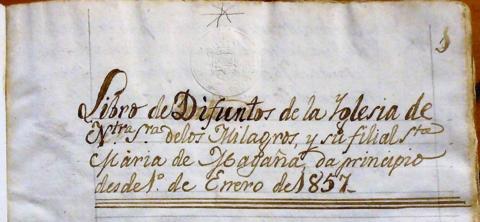 Libro de Difuntos de la Yglesia de
Ntra Sra delos Milagros, y su filial Sta
Maria de Magaña, da principio
desde 1º. de Enero de 1857